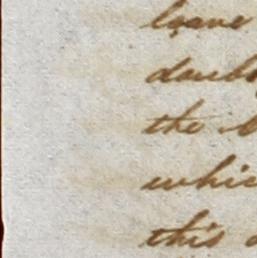 leave
doub
the
whic
this